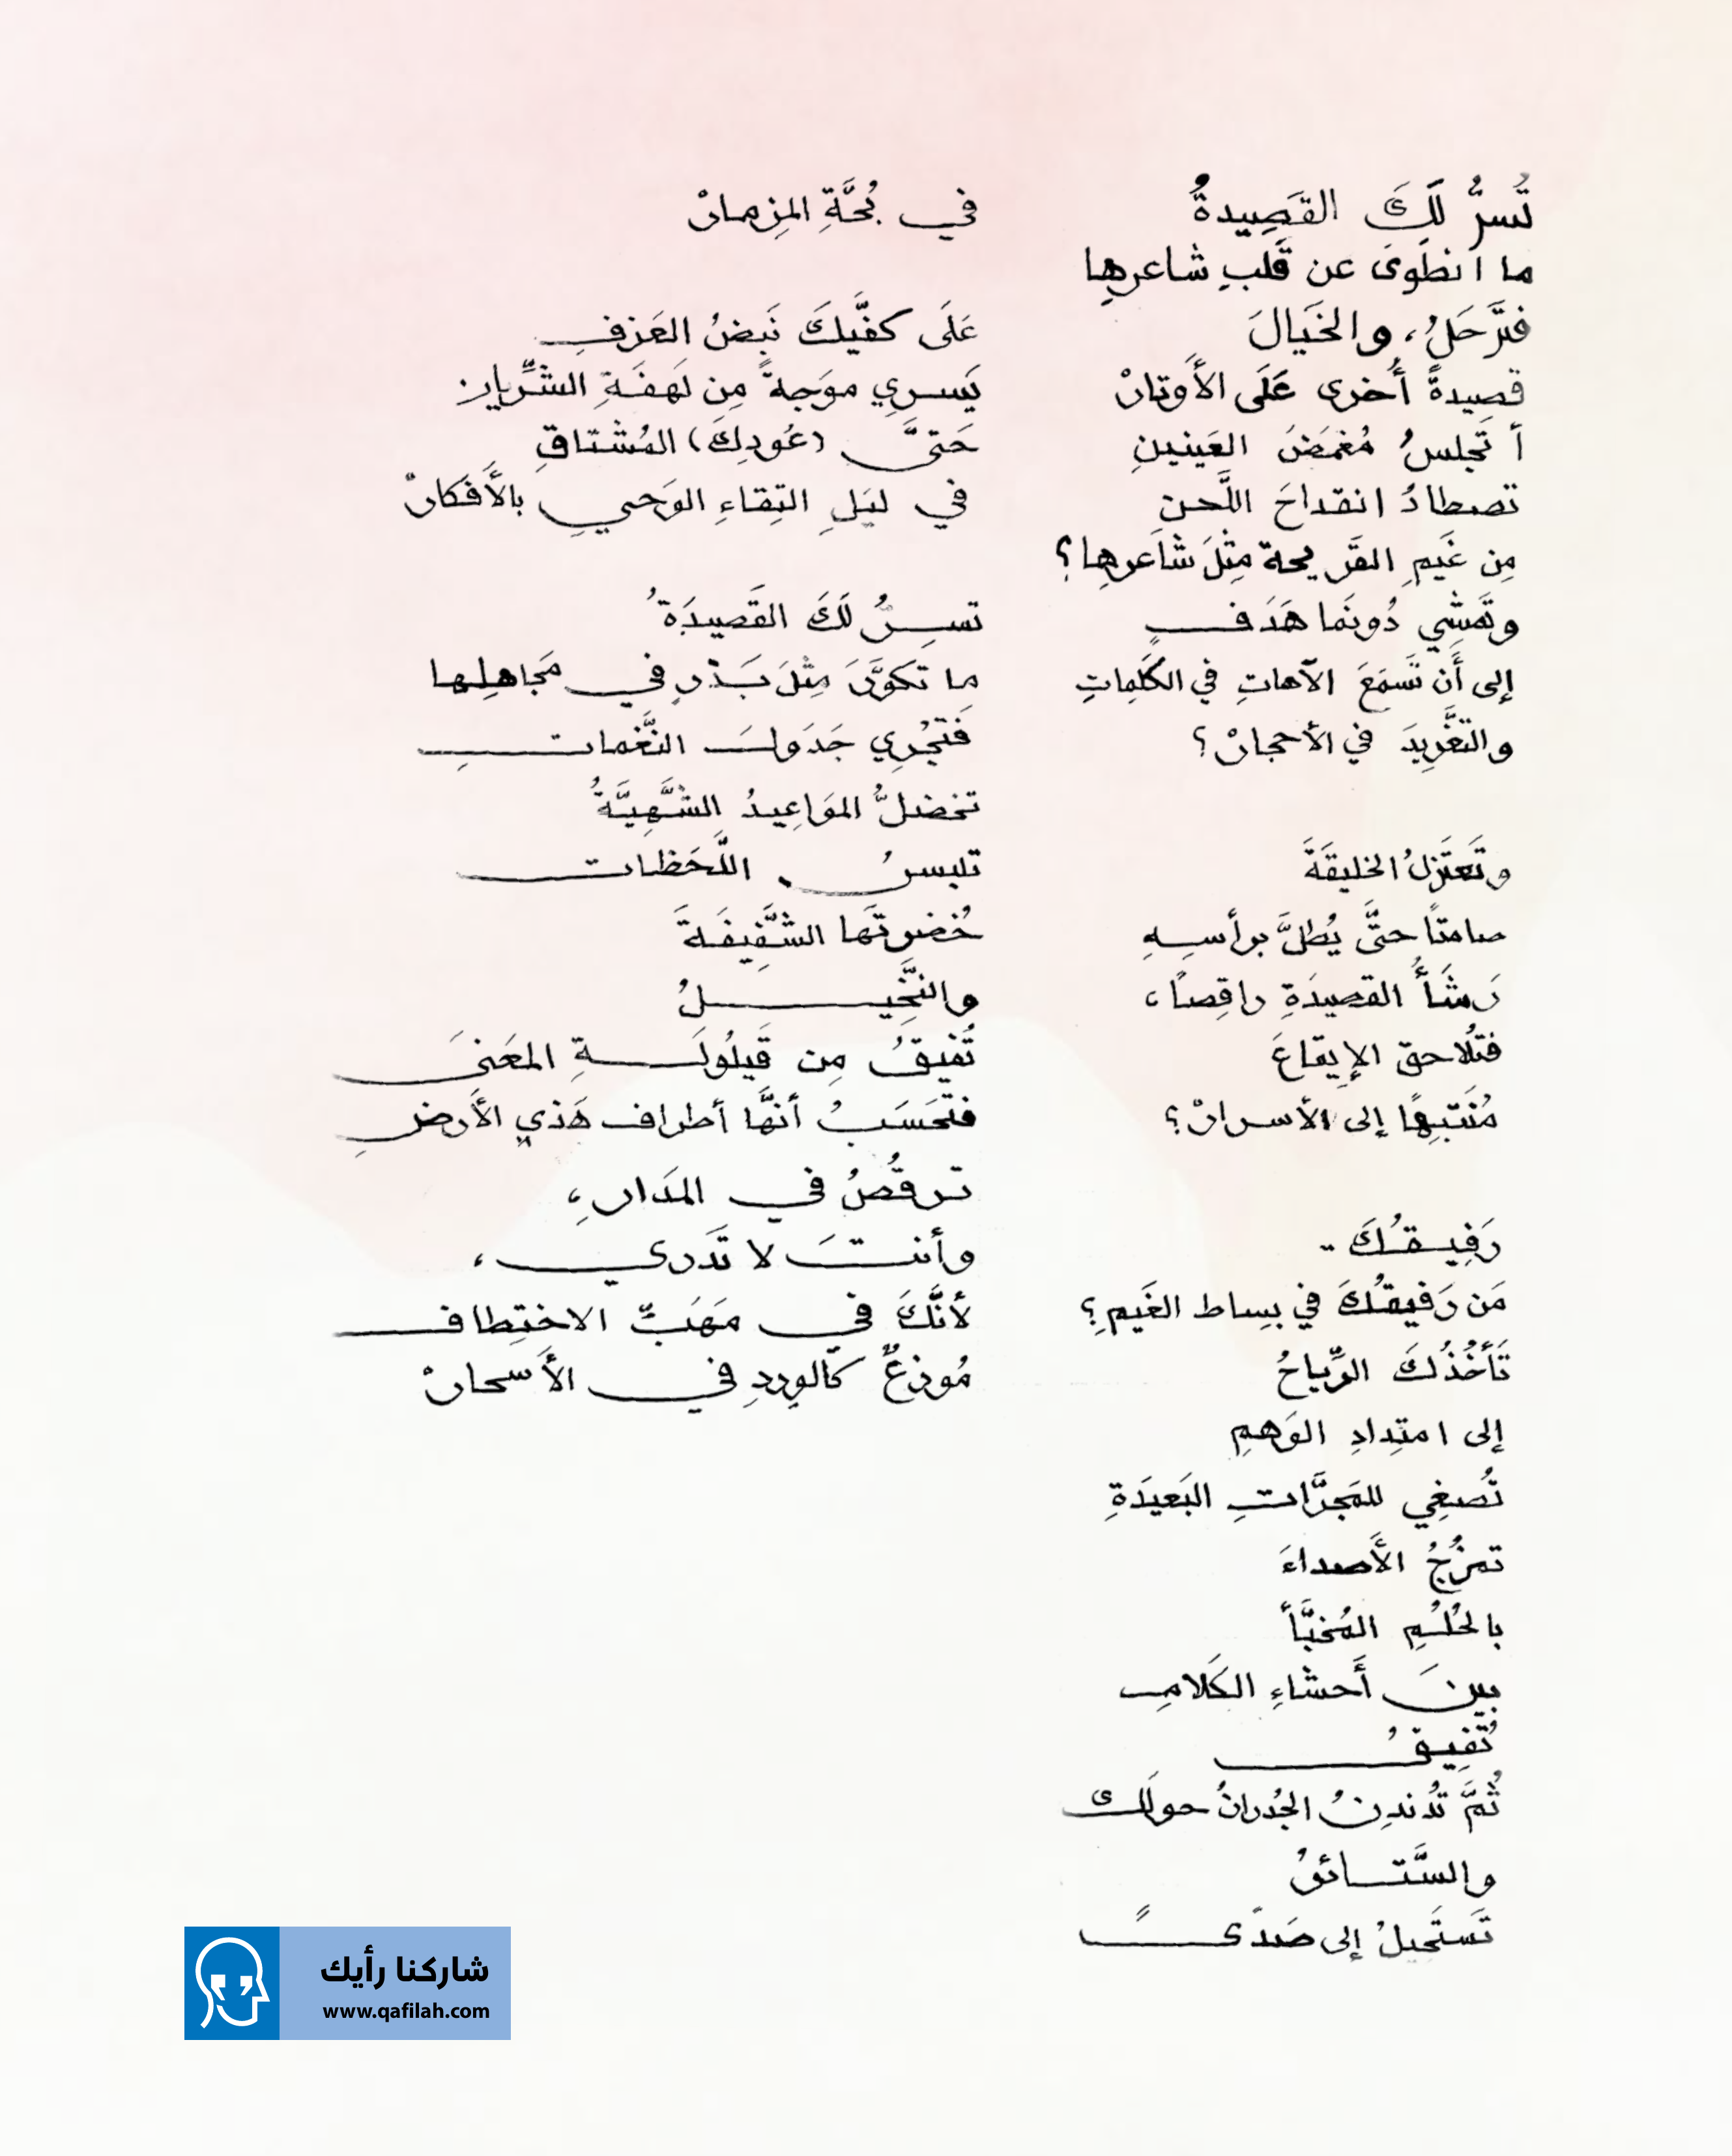 تُسِرُّ لَكَ القَصِيدةُ
ما انطَوى عن قَلبِ شاعرِها
فتَرحَلُ، والخَيالَ
قصيدةً أُخرى عَلَى الأَوتارْ
أتَجلسُ مُغمَضَ العَينينِ
تصطادُ انقداحَ اللَّحن
مِن غَيمِ القَريحة مِثْلَ شاعرِها؟
وتَمشِي دُونَما هَدَفٍ
إلى أَن تَسمَعَ الآهاتِ في الكَلِماتِ
والتغْرِيدَ في الأحجارْ؟
وتَعتَزلُ الخليقَةَ
صامتًا حتَّى يُطلَّ برأسِهِ
رَشَأُ القصيدَةِ راقِصًا،
فتُلاحق الإيقاعَ
مُنْتبِهًا إلى الأسرارْ؟
رَفِيقُكَ..
مَن رَفيقُكَ في بِساط الغَيمِ؟
تَأخُذُكَ الرِّياحُ
إلى امتِدادِ الوَهمِ
تُصغِي للمَجرَّاتِ البَعيدَةِ
تمزُجُ الأَصداءَ
بالحُلُمِ المُخبَّأ
بينَ أَحشاءِ الكَلامِ
تُفِيقُ
ثُمَّ تُدندِنُ الجُدرانُ حولَك
والسَّتائرُ
تَستَحِيلُ إلى صَدًى
في بُحَّةِ المِزمارْ
عَلَى كفَّيكَ نَبضُ العَزفِ
يَسرِي موَجةً مِن لَهفَةِ الشِّريان
حَتَّى (عُودِكَ) المُشتاقِ
في ليَلِ التِقاءِ الوَحيِ بالأَفكارْ
تسِرُّ لَكَ القَصيدَةُ
ما تكوَّنَ مِثْلَ بَذْرٍ في مَجاهلِها
فَتَجْرِي جَدَولَ النَّغماتِ
تخضلُّ المَواعِيدُ الشَّهِيَّةُ
تلبسُ اللَّحَظات
خُضرتَها الشَّفِيفَةَ
والنَّخِيلُ
تُفيقُ مِن قَيلُولَةِ المَعنَى
فتَحسَبُ أنَّها أطراف هَذي الأَرضِ
ترقُصُ في المَدارِ،
وأنتَ لا تَدري،
لأنَّكَ في مَهَبِّ الاختِطاف
مُوزعٌ كَالوردِ في الأَسحارْ
شاركنا رأيك
www.qafilah.com